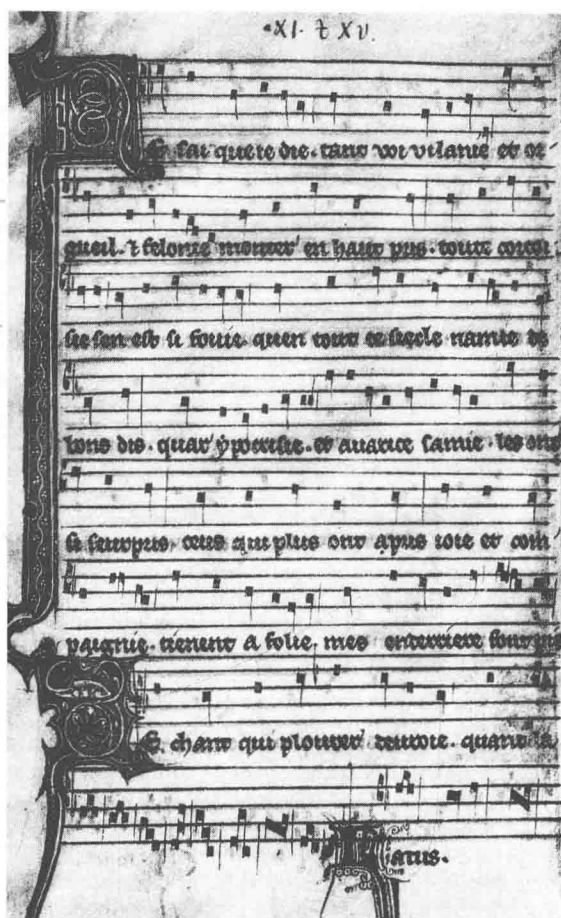 ·XI· ⁊ XV.
NE sai que ie die. tant voi vilanie et or
gueil. ⁊ felonie monter en haut pris. toute cortoi
sie sen est si fouie. quen tout ce siecle namie de
bons dis. quar ypocrisie. et auarice samie. les ont
si seurpris. ceus qui plus ont apris ioie et com
paignie. tienent a folie. mes enterriere font pis
IE. chant qui plourer deuroie. quant la
atus.